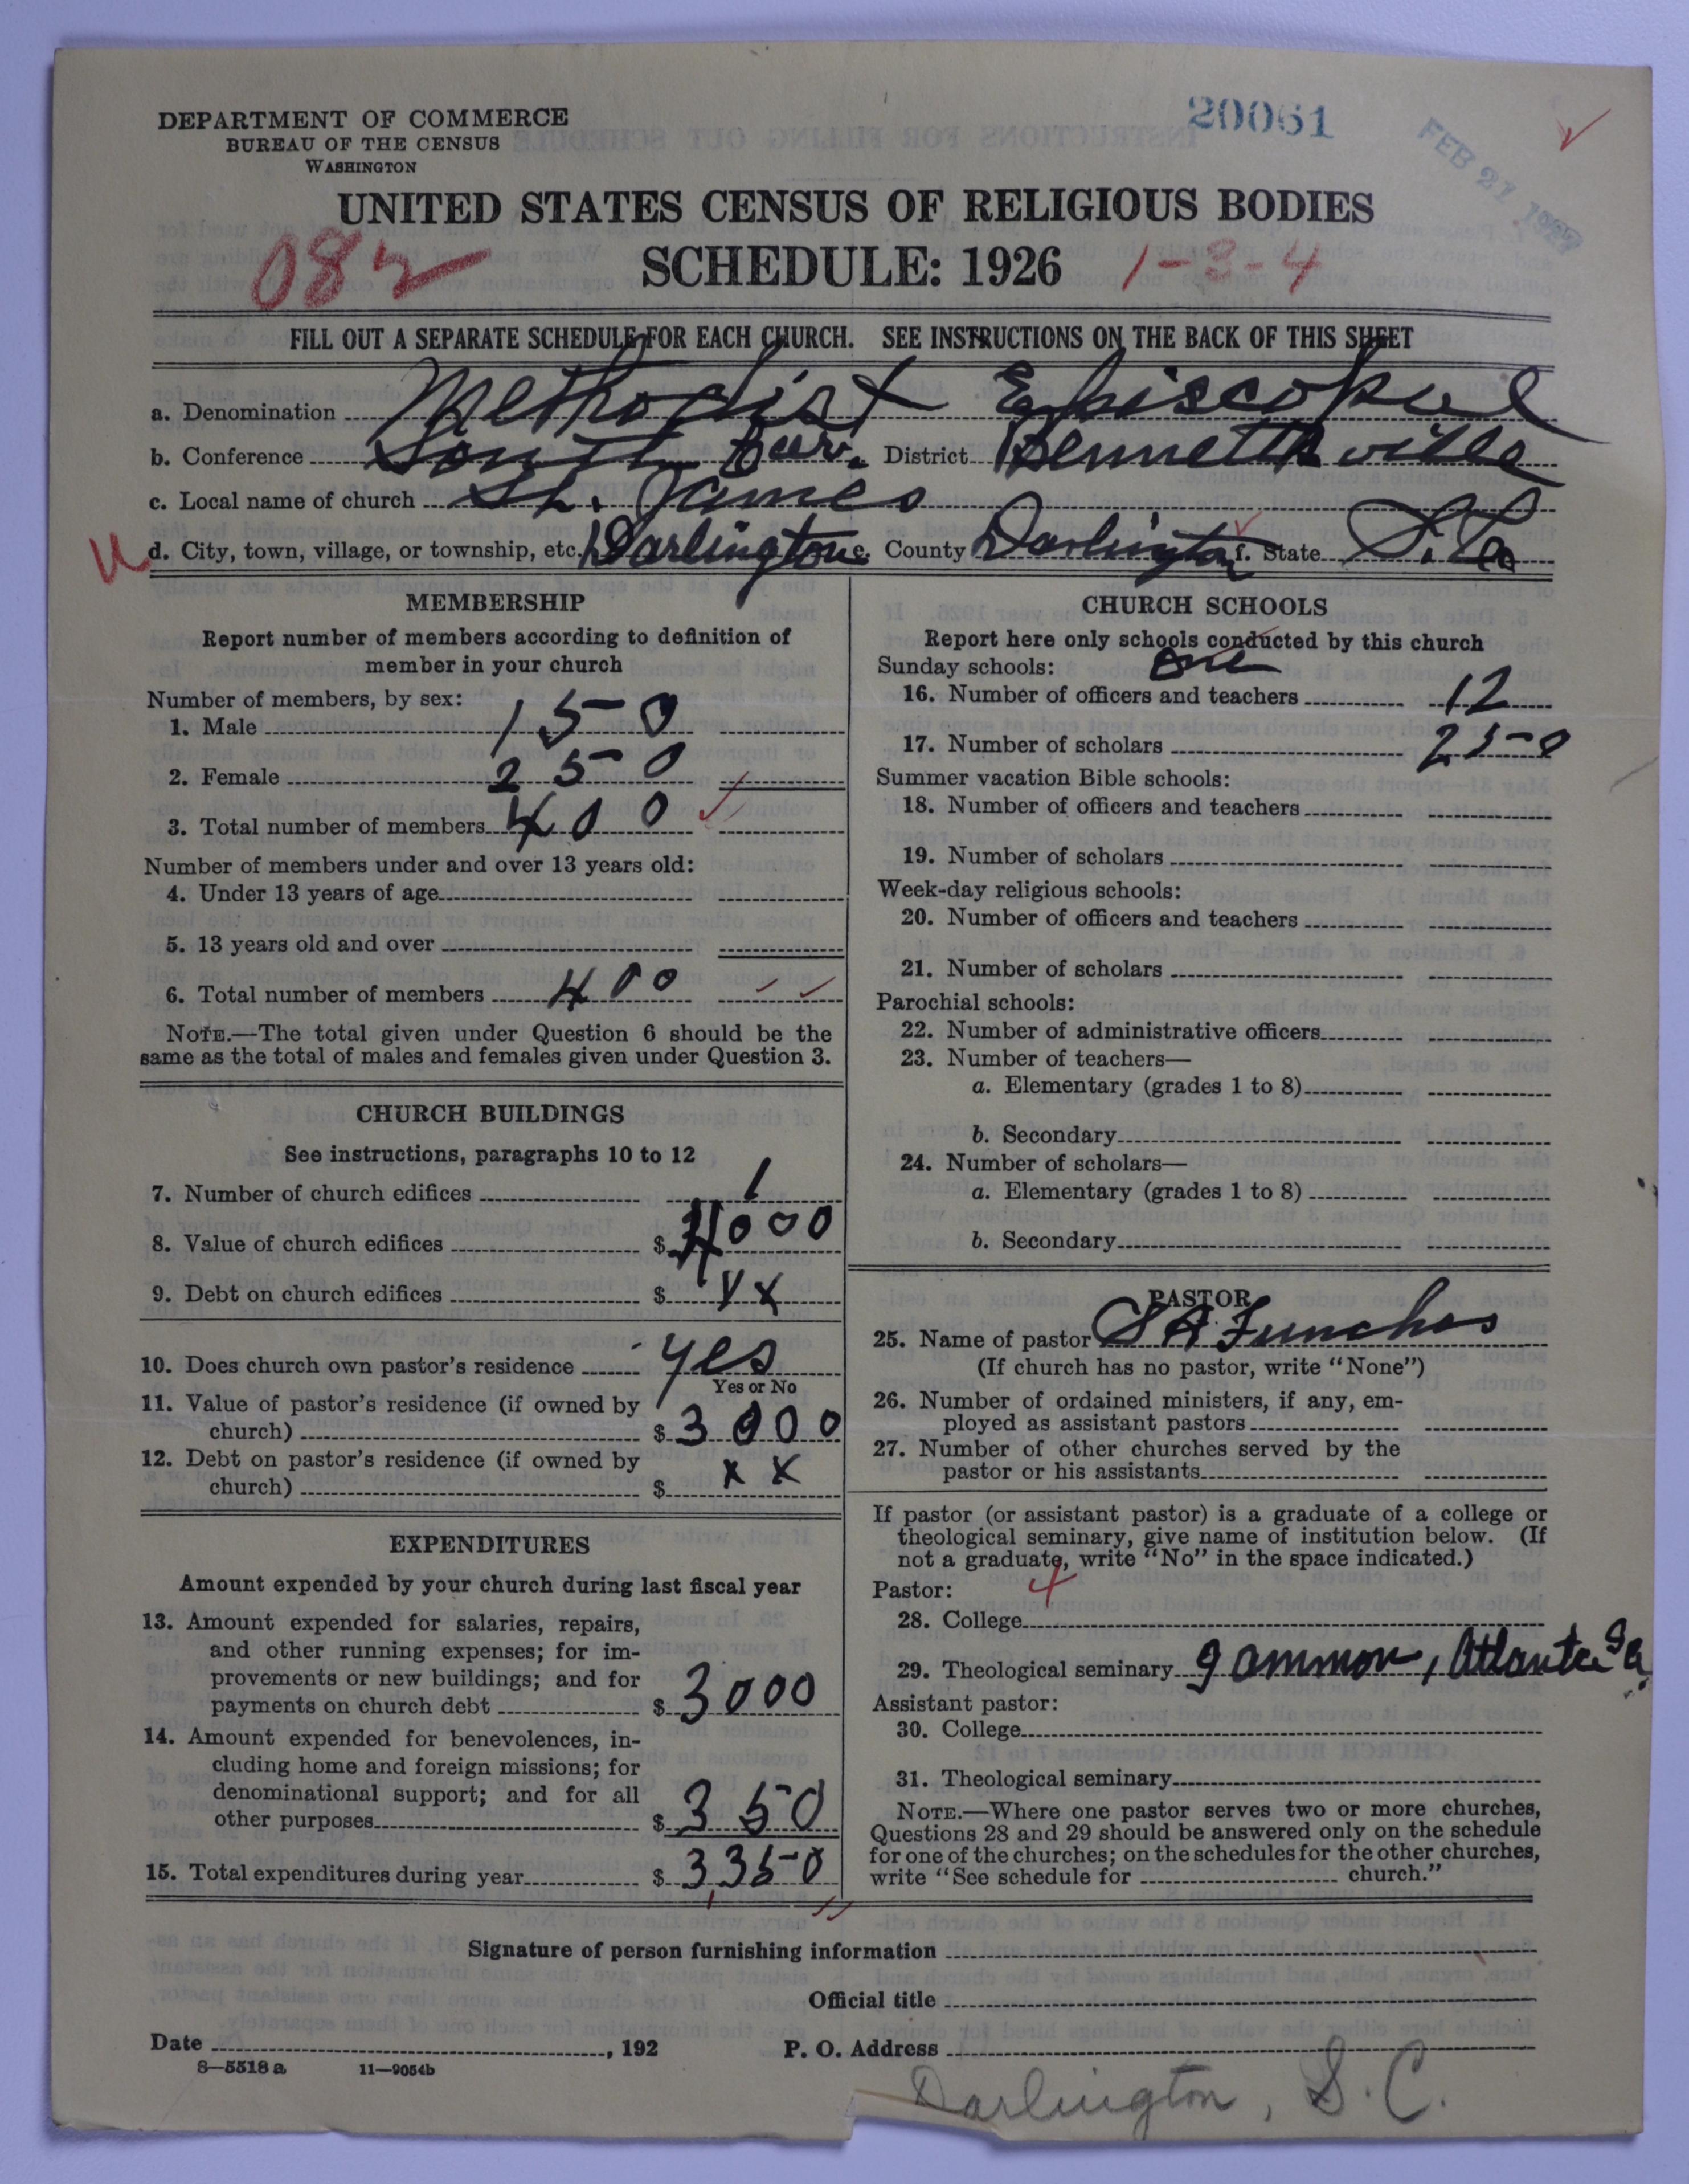 DEPARTMENT OF COMMERCE
BUREAU OF THE CENSUS
WASHINGTON
20061
FEB 21 1927
UNITED STATES CENSUS OF RELIGIOUS BODIES
082
SCHEDULE: 1926
1-3-4
FILL OUT A SEPARATE SCHEDULE FOR EACH CHURCH. SEE INSTRUCTIONS ON THE BACK OF THIS SHEET
a. Denomination Methodist Episcopal
b. Conference South Car. District Bennettsville
c. Local name of church St. James
d. City, town, village, or township, etc. Darlington e. County Darlington f. State S. Ca
MEMBERSHIP
Report number of members according to definition of
member in your church
Number of members, by sex:
1. Male 150
2. Female 250
3. Total number of members 400
Number of members under and over 13 years old:
4. Under 13 years of age
5. 13 years old and over
6. Total number of members 400
NOTE.—The total given under Question 6 should be the
same as the total of males and females given under Question 3.
CHURCH BUILDINGS
See instructions, paragraphs 10 to 12
7. Number of church edifices 1
8. Value of church edifices $ 4000
9. Debt on church edifices $ xx
10. Does church own pastor's residence yes
Yes or No
11. Value of pastor's residence (if owned by
church) $ 3000
12. Debt on pastor's residence (if owned by
church) $ xx
EXPENDITURES
Amount expended by your church during last fiscal year
13. Amount expended for salaries, repairs,
and other running expenses; for im-
provements or new buildings; and for
payments on church debt $ 3000
14. Amount expended for benevolences, in-
cluding home and foreign missions; for
denominational support; and for all
other purposes $ 350
15. Total expenditures during year $ 3350
CHURCH SCHOOLS
Report here only schools conducted by this church
Sunday schools: one
16. Number of officers and teachers 12
17. Number of scholars 250
Summer vacation Bible schools:
18. Number of officers and teachers
19. Number of scholars
Week-day religious schools:
20. Number of officers and teachers
21. Number of scholars
Parochial schools:
22. Number of administrative officers
23. Number of teachers—
a. Elementary (grades 1 to 8)
b. Secondary
24. Number of scholars—
a. Elementary (grades 1 to 8)
b. Secondary
PASTOR
25. Name of pastor S A Funches
(If church has no pastor, write "None")
26. Number of ordained ministers, if any, em-
ployed as assistant pastors
27. Number of other churches served by the
pastor or his assistants
If pastor (or assistant pastor) is a graduate of a college or
theological seminary, give name of institution below. (If
not a graduate, write "No" in the space indicated.)
Pastor: 4
28. College
29. Theological seminary Gammon, Atlanta Ga
Assistant pastor:
30. College
31. Theological seminary
NOTE.—Where one pastor serves two or more churches,
Questions 28 and 29 should be answered only on the schedule
for one of the churches; on the schedules for the other churches,
write "See schedule for church."
Signature of person furnishing information
Official title
Date , 192
P. O. Address
8—5518 a 11—9054b
Darlington, S.C.